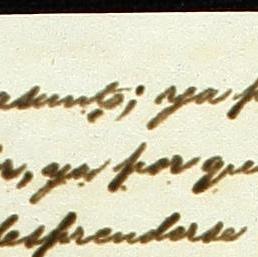 asunto; ya p
r, ya por que
desprenderse